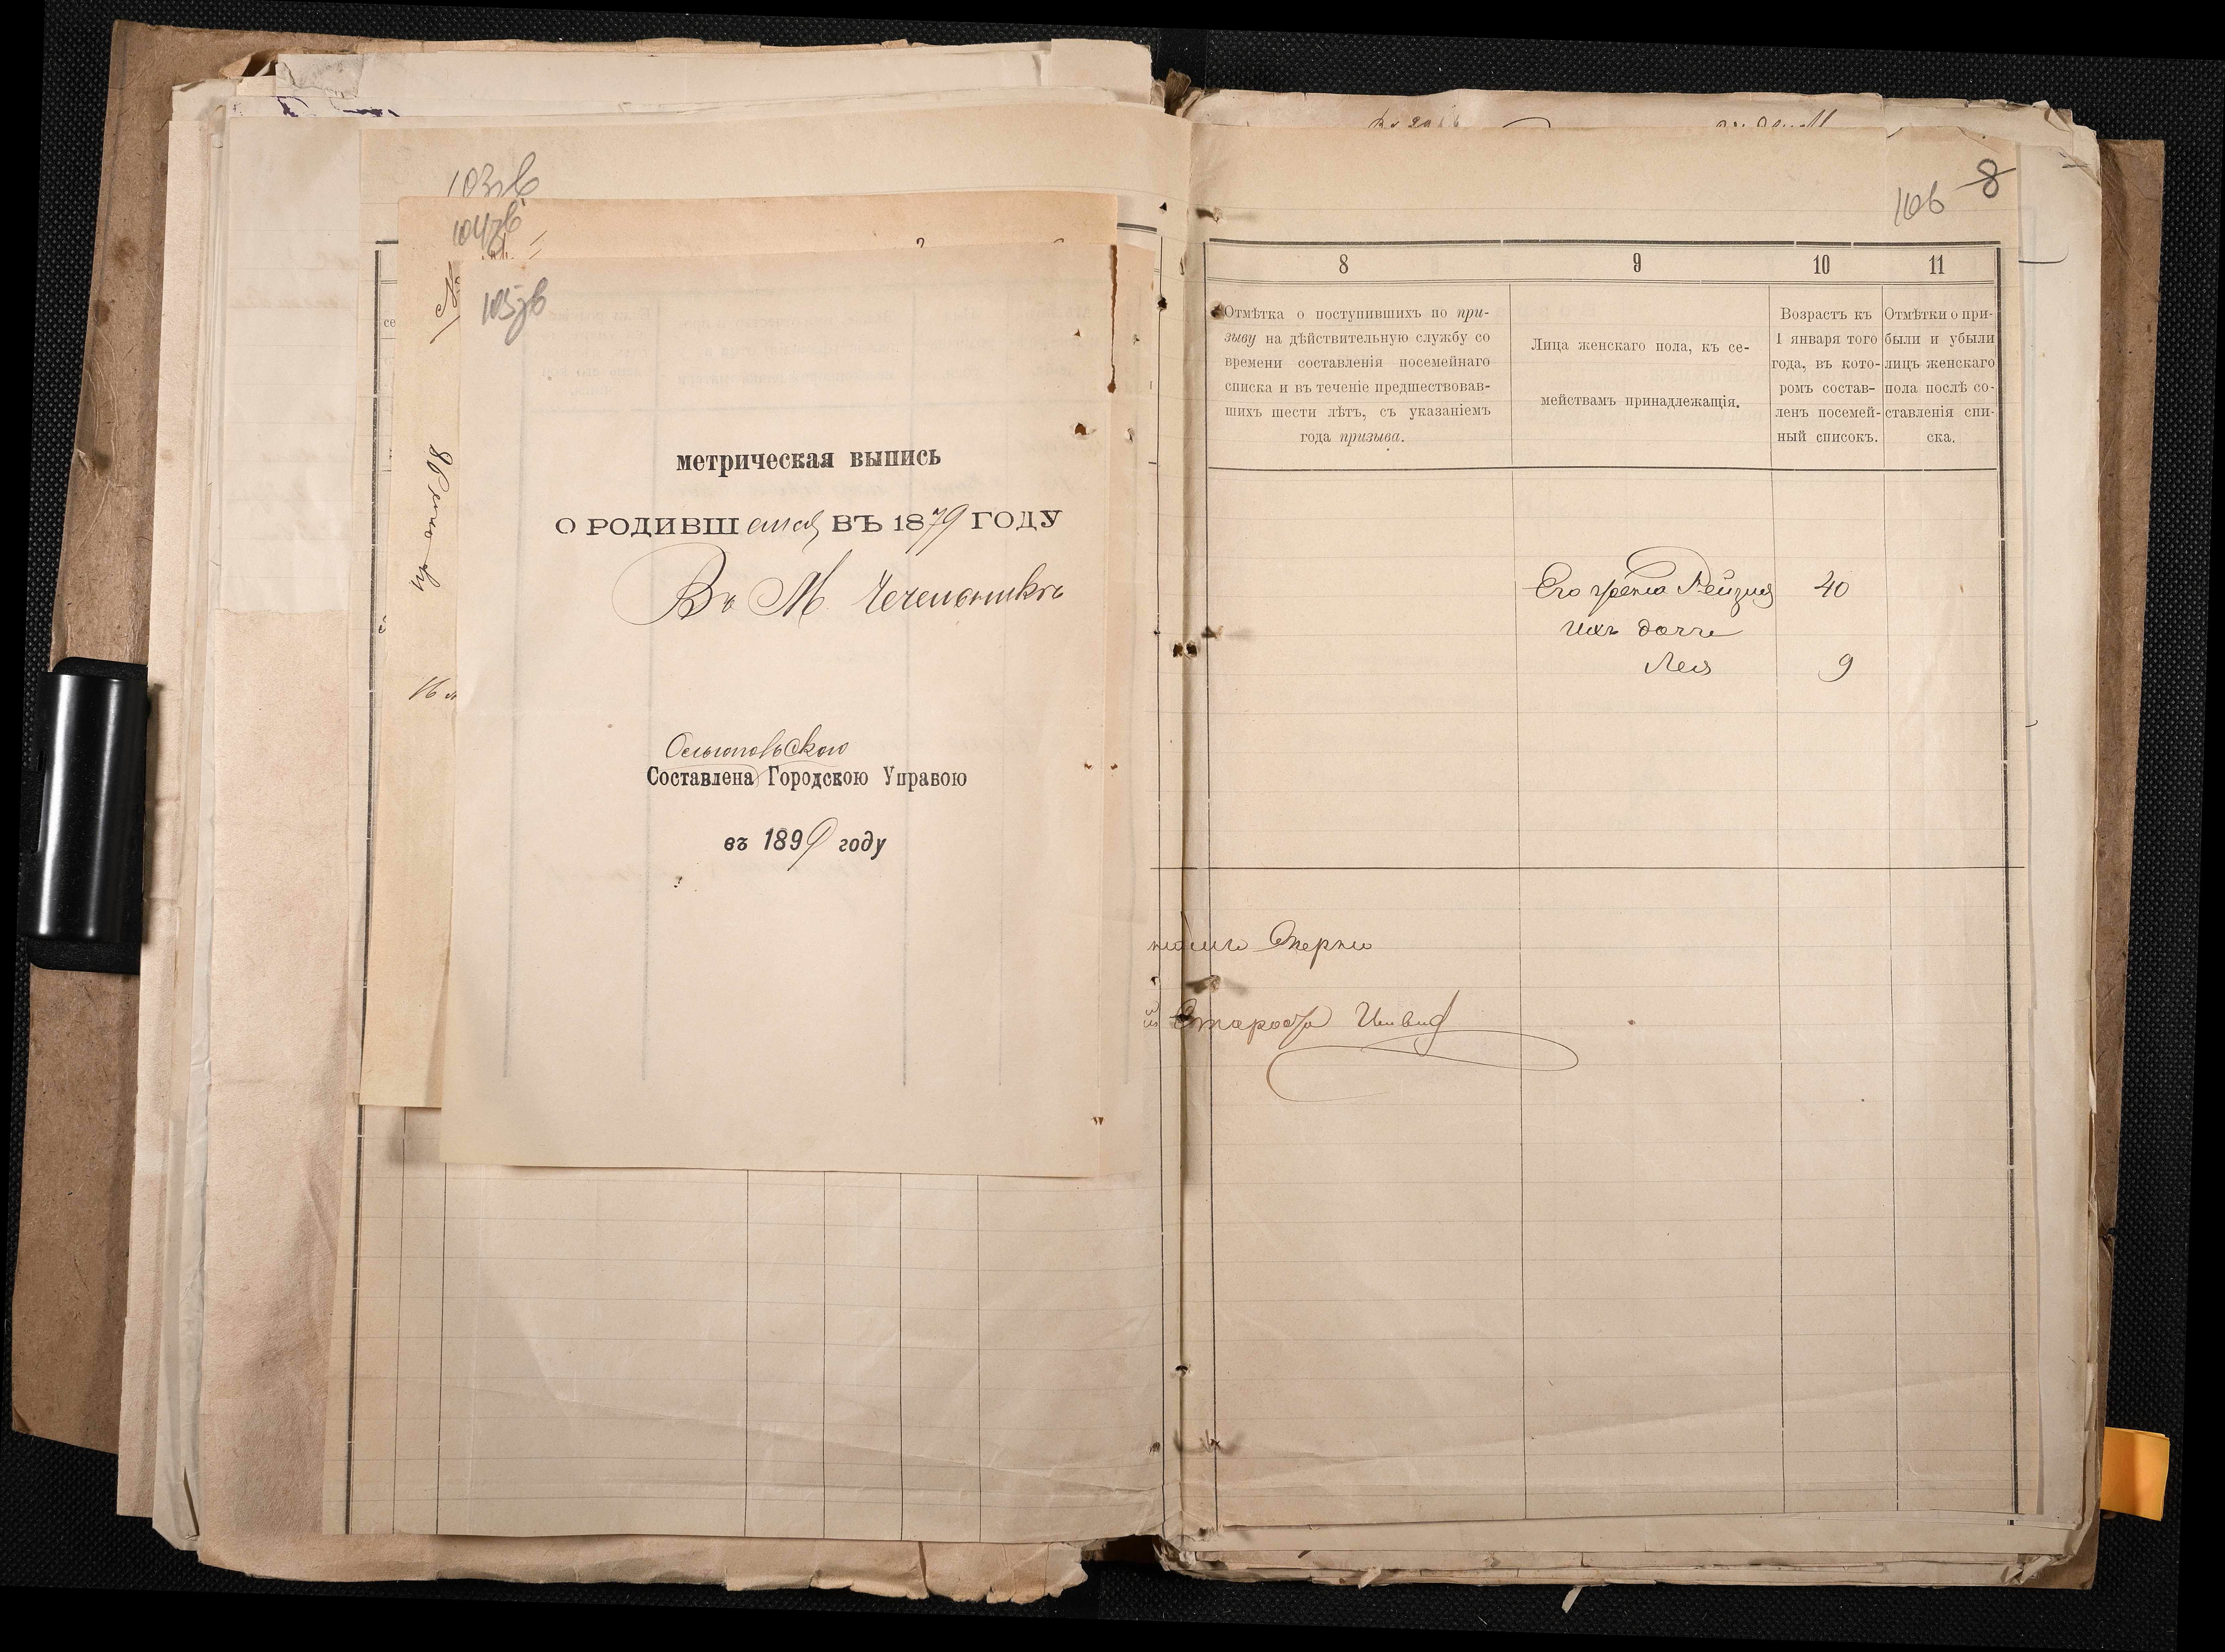 103зв
104зв
105зв
метрическая выпись
О РОДИВШемся ВЪ 1879 ГОДУ
Въ М. Чечельникъ
Ольгопольскою
Составлена Городскою Управою
въ 1899 году
106 8
8 9 10 11
Отмѣтка о поступившихъ по при-
зыву на дѣйствительную службу со
времени составленія посемейнаго
списка и въ теченіе предшествовав-
шихъ шести лѣтъ, съ указаніемъ
года призыва.
Лица женскаго пола, къ се-
мействамъ принадлежащія.
Возрастъ къ
1 января того
года, въ кото-
ромъ состав-
ленъ посемей-
ный списокъ.
Отмѣтки о при-
были и убыли
лицъ женскаго
пола послѣ со-
ставленія спи-
ска.
Его жена Рейзя 40
ихъ дочь
Лея 9
Староста